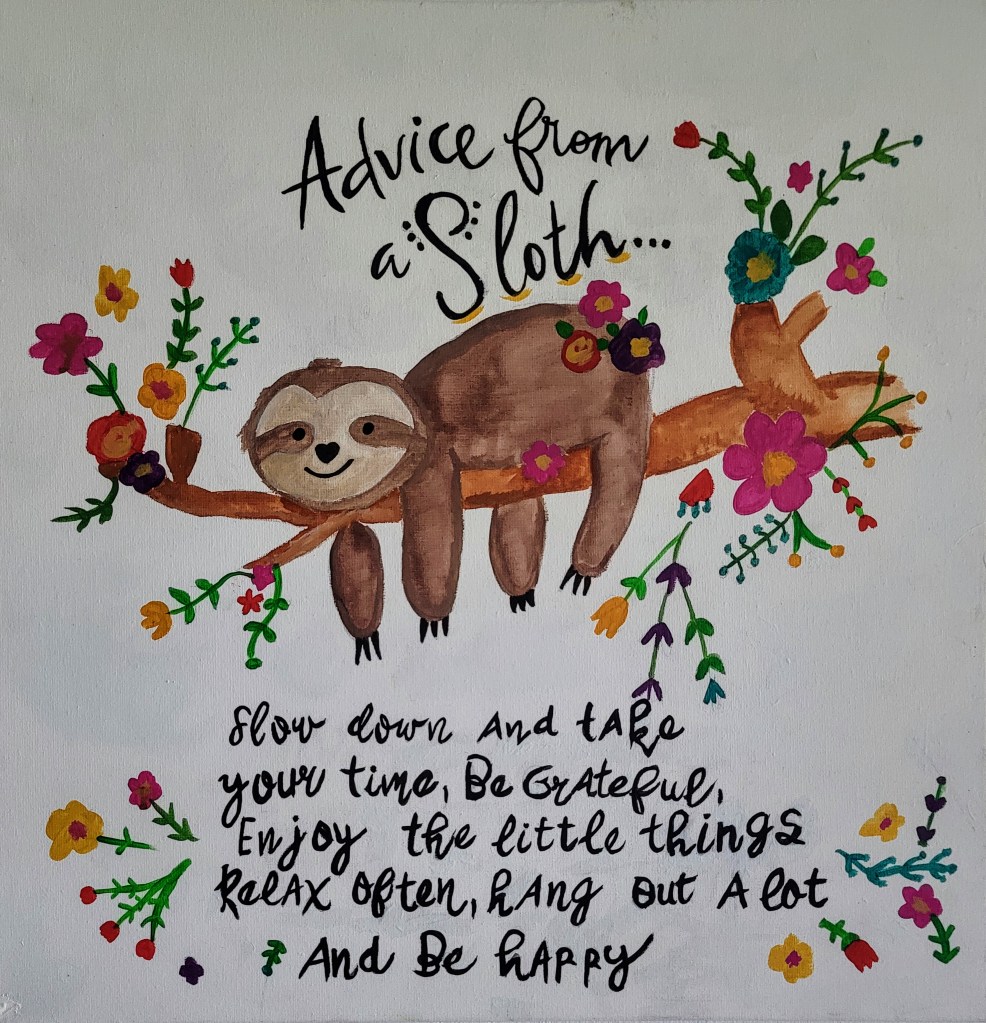 Advice from
a Sloth...
Slow down And tAke
your time, Be GrAteful,
Enjoy the little things
RelAX Often, hAng Out A lot
And Be hAPPy